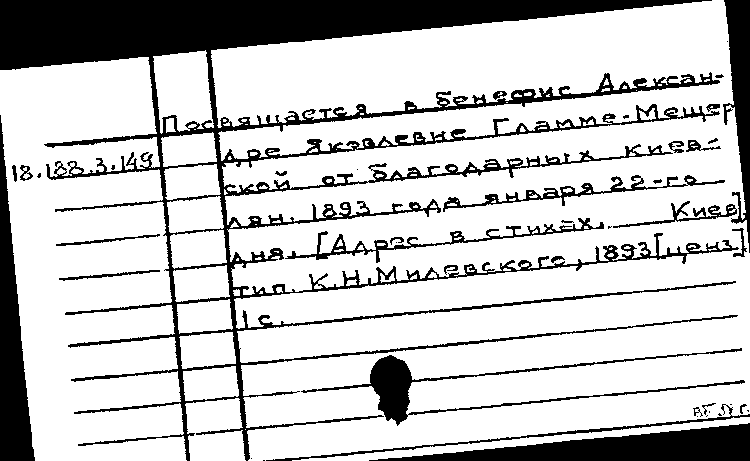 Посвящается в бенефис Алексан-
18.188.3.149 дре Яковлевне Гламме-Мещер
ской от благодарных киев-
лян. 1893 года января 22-го
дня. [Адрес в стихах. Киев],
тип. К.Н.Милевского, 1893[ценз].
1 с.